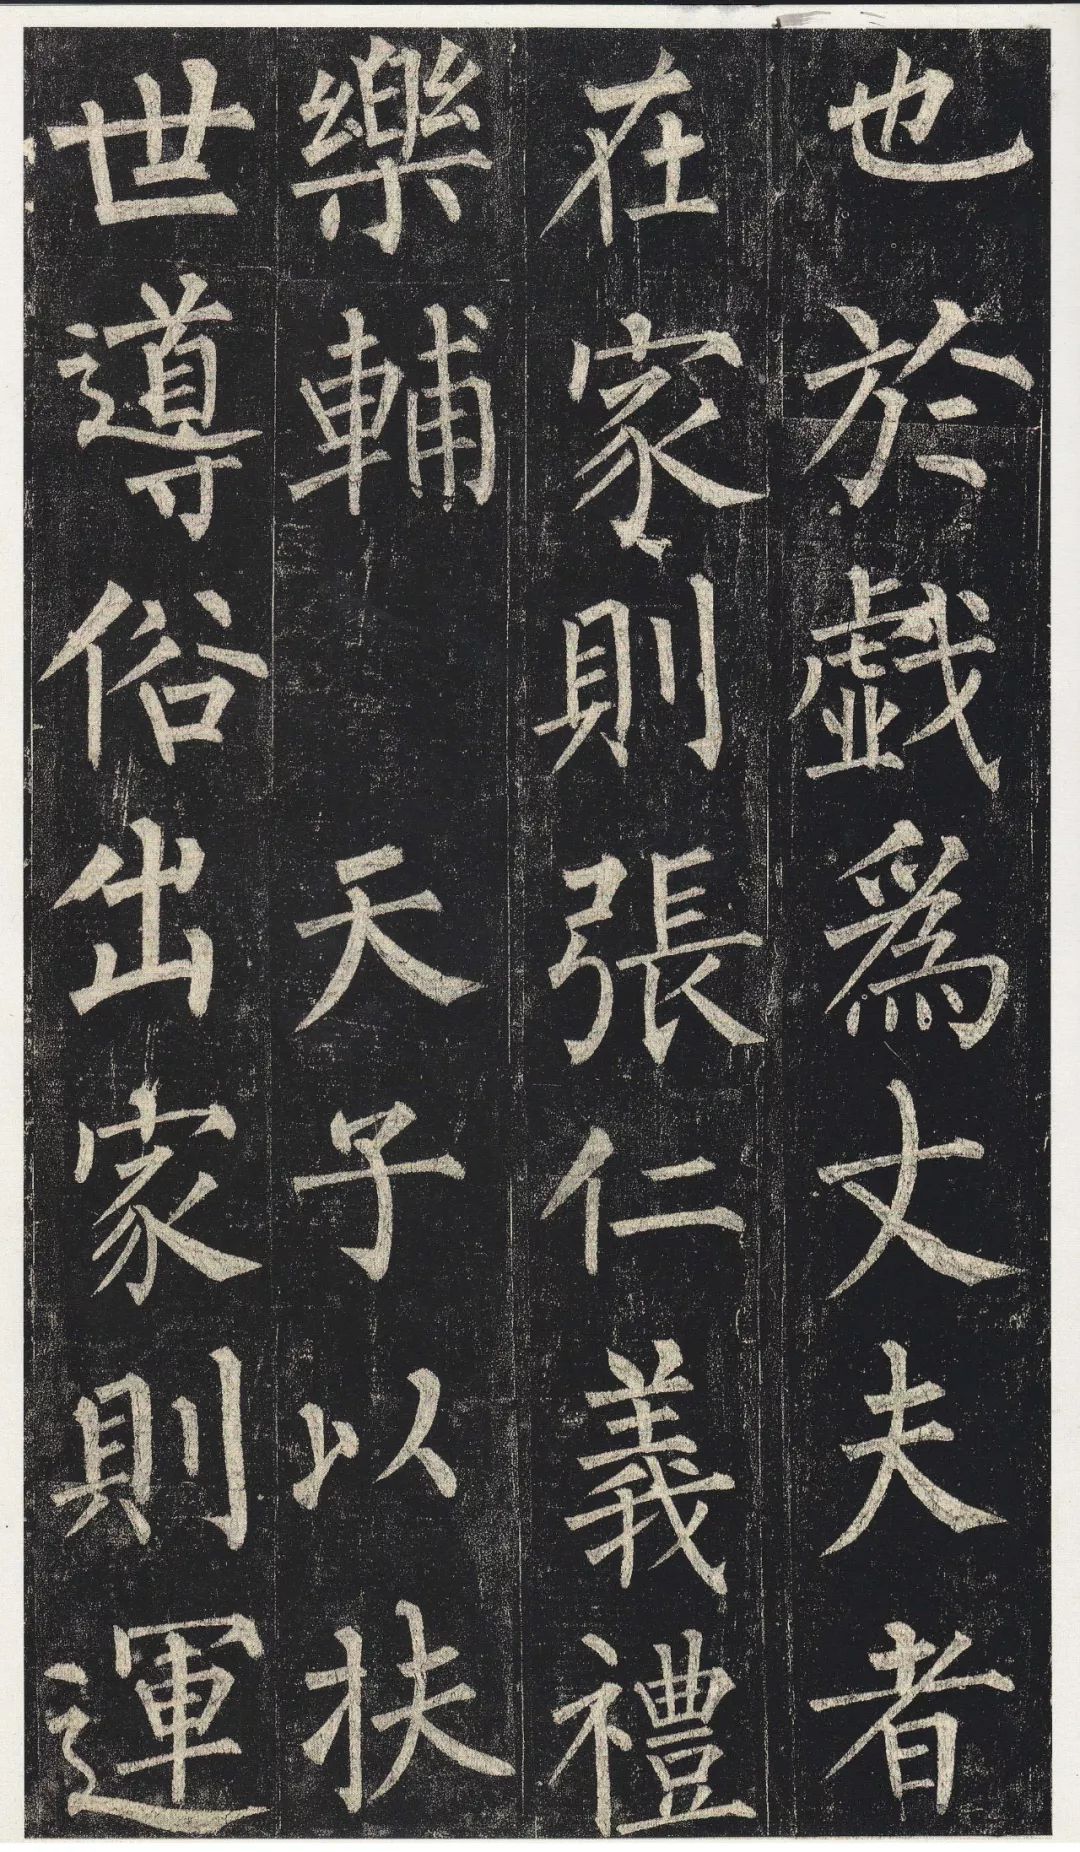 也於戯為丈夫者
在家則張仁義禮
樂輔天子以扶
世導俗出家則運